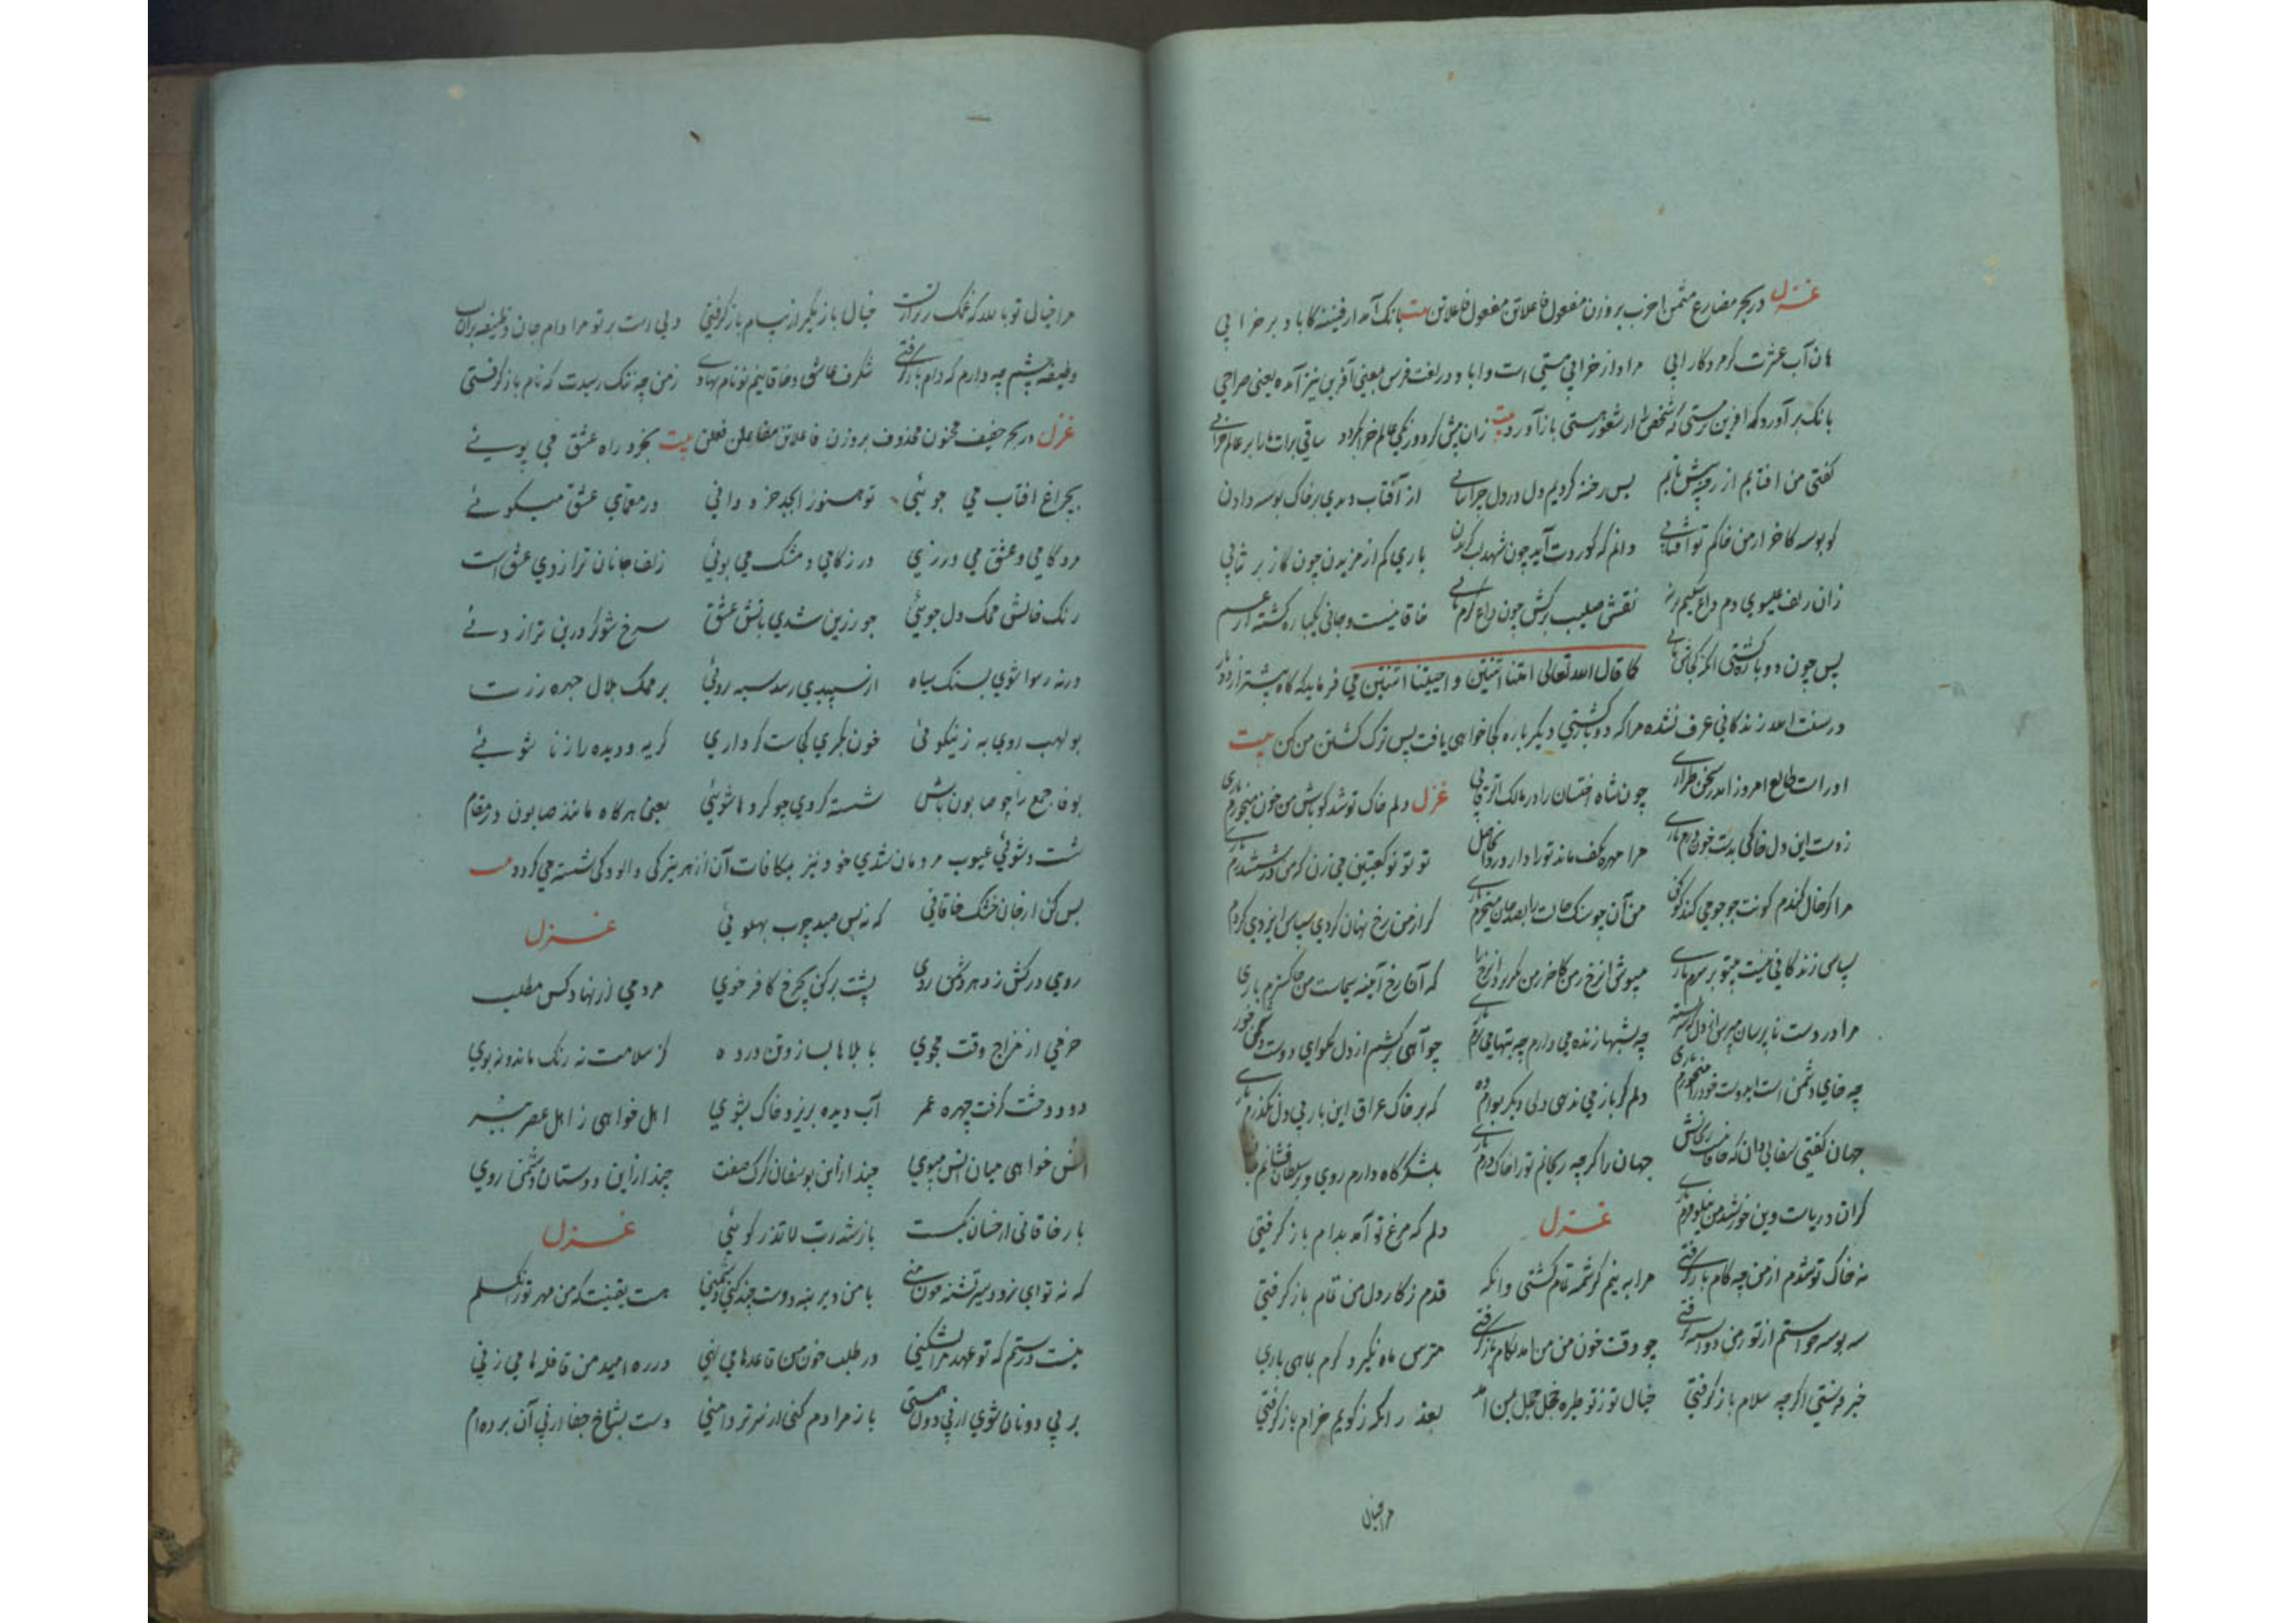 غزل در بحر مضارع مثمن اخرب بروزن مفعول فاعلاتن مفعول فاعلاتن بیت بانک آمد از قنینه کاباد بر خرابی
هان آب عشرت کر مرد کار ابی مراد از خرابی مستی است و ابا و در لغت فرس بمعنی آفرین نیز آمده یعنی صراحی
بانک بر آورد که افرین بر مستی که شخص را از شعور هستی باز آورد بیت زان پیش کز دو رنکی عالم خراب کردد ساقی برات ما را بر عالم خرابی
کفتی من افتابم از رخنه پیش تابم بس رخنه کردیم دل در دل چرا نتابی از آفتاب دیدی بر خاک بوسه دادن
کو بوسه کاخر از من خاکم تو افتابی دانم که کوردت آید چون شهد لب کزیدن باری کم از مزیدن چون کاز بر شتابی
زان زلف عیسوی دم داغ سکیم برنه نقش صلیب برکش چون داغ کرم تابی خاقانیست و جانی یکباره کشته از غم
پس چون دوباره کشتی آنکه کجاش یابی کما قال الله تعالی امتنا اثنتین و احییتنا اثنتین می فرماید که کاه بیشتر از دو بار
در سنت الله زندکانی عرف نشده مرا که دوبار کشتی دیکر باره کجا خواهی یافت پس ترک کشتن من کن بیت
او راست طالع امروز اندر سخن طرازی چون شاه اختسان را در مالک الرقابی غزل دلم خاک تو شد کو باش من خون میخورم باری
ز دست این دل خاکی بدست خون درم باری مرا مهره بکف ماند تو را داو روان حاصل تو نو نو کعبتین می زن که من در ششدرم باری
مرا کر خال کندم کونت جو جو می کند کو کن من آن جو سنک خالت را بصد جان میخرم باری کر از من رخ نهان کردی سپاس ایزدی کردم
سپاس زندکانی نیست بیتو بر سرم باری میوش از من رخ ار من کاخر من نکرد از رخ که آن رخ آینه سیماست من خاکسترم باری
مرا در دست ناپرسان مپرس از دل که سرمسته چه شبها زنده می دارم چه تبها می برم باری چو آهی برکشم از دل نکو ای دوست دشمن خور
چه جای دشمن است ایدوست خود را میخورم باری دلم کر باز می ندهی دلی دیکر بوامم ده که بر خاک عراق این بار بی دل نکذرم باری
جهان کفتی سفالی دان که خاقانیست ریحانش جهان را کرچه ریحانم تو را خاک درم باری بلشکرکاه دارم روی و بر سلطان فشانم جان
کران دریاست وین خورشید من نیلوفرم باری غزل دلم که مرغ تو آمد بدام باز کرفتی
نه خاک تو شدم از من چه کام باز کرفتی مرا به نیم کرشمه تمام کشتی و آنکه قدم ز کار دل من تمام باز کرفتی
سه بوسه خواستم از تو ز من دو اسبه برفتی چو وقت خون من آمد لکام باز کرفتی مترس ماه نکیرد کرم بماهی باری
خبر فرستی اکر چه سلام باز کرفتی خیال تو ز تو طره خجل خجل بمن آمد بعذر آنکه ز کویم خرام باز کرفتی
مرا خیال
مرا خیال تو بالله که غمک سارتر از تست خیال باز مکیر از پیام باز کرفتی دلی است بر تو مرا وام جان وظیفه بر آن لب
وظیفه چشم چه دارم که وام باز کرفتی شکرف عاشق و خاقانیم تو نام نهادی ز من چه ننک رسیدت که نام باز کرفتی
غزل در بحر خفیف مخبون محذوف بروزن فاعلاتن مفاعلن فعلن بیت بخرد راه عشق می پویی
بچراغ افتاب می جوئی تو هنوز ابجد خرد دانی در معمای عشق میکوئی
مرد کامی و عشق می ورزی در زکامی و مشک می بوئی زلف جانان ترازوی عشق است
رنک خالش محک دل جوئی چو زرین شدی باتش عشق سرخ شو کر درین ترازوئی
ورنه رسوا شوی بسنک سیاه از سپیدی رسد سیه روئی بر محک بلال چهره زرست
بولهب روی به ز نیکوئی خون بکری کجاست کرداری کریه و دیده را ز نا شوئی
بوفا جمع را چو صابون باش شسته کردی چو کردها شوئی یعنی هرکاه مانند صابون در مقام
شست و شوئی عیوب مردمان شدی خود نیز بمکافات آن از هر تیرکی و الودکی شسته می کردد بیت
بس کن از جان خشک خاقانی که نه بس صید چرب پهلوئی غزل
روی درکش ز دهر دشمن روی پشت برکن بچرخ کافر خوی مردمی از نهاد کس مطلب
خرمی از مزاج وقت مجوی با بلاها بساز و تن درده کز سلامت نه رنک ماند و نه بوی
دود وحشت کرفت چهره عمر آب دیده بریز و خاک بشوی اهل خواهی ز اهل عصر ببر
انس خواهی میان انس مپوی چند ازین یوسفان کرک صفت چند ازاین دوستان دشمن روی
بار خاقانی ار خسان بکست باز شد رب لا تذر کوئی غزل
که نه تو ای زود سیر تشنه خون منی با من دیرینه دوست چند کنی دشمنی هست یقینت که من مهر تو را نکسلم
نیست درستم که تو عهد مرا نشکنی در طلب خون من قاعدها می نهی در ره امید من قافلها می زنی
بر پی دونان شوی از پی دون همتی باز مرا دم کنی از سر تر دامنی دست بشاخ جفا از پی آن برده ام